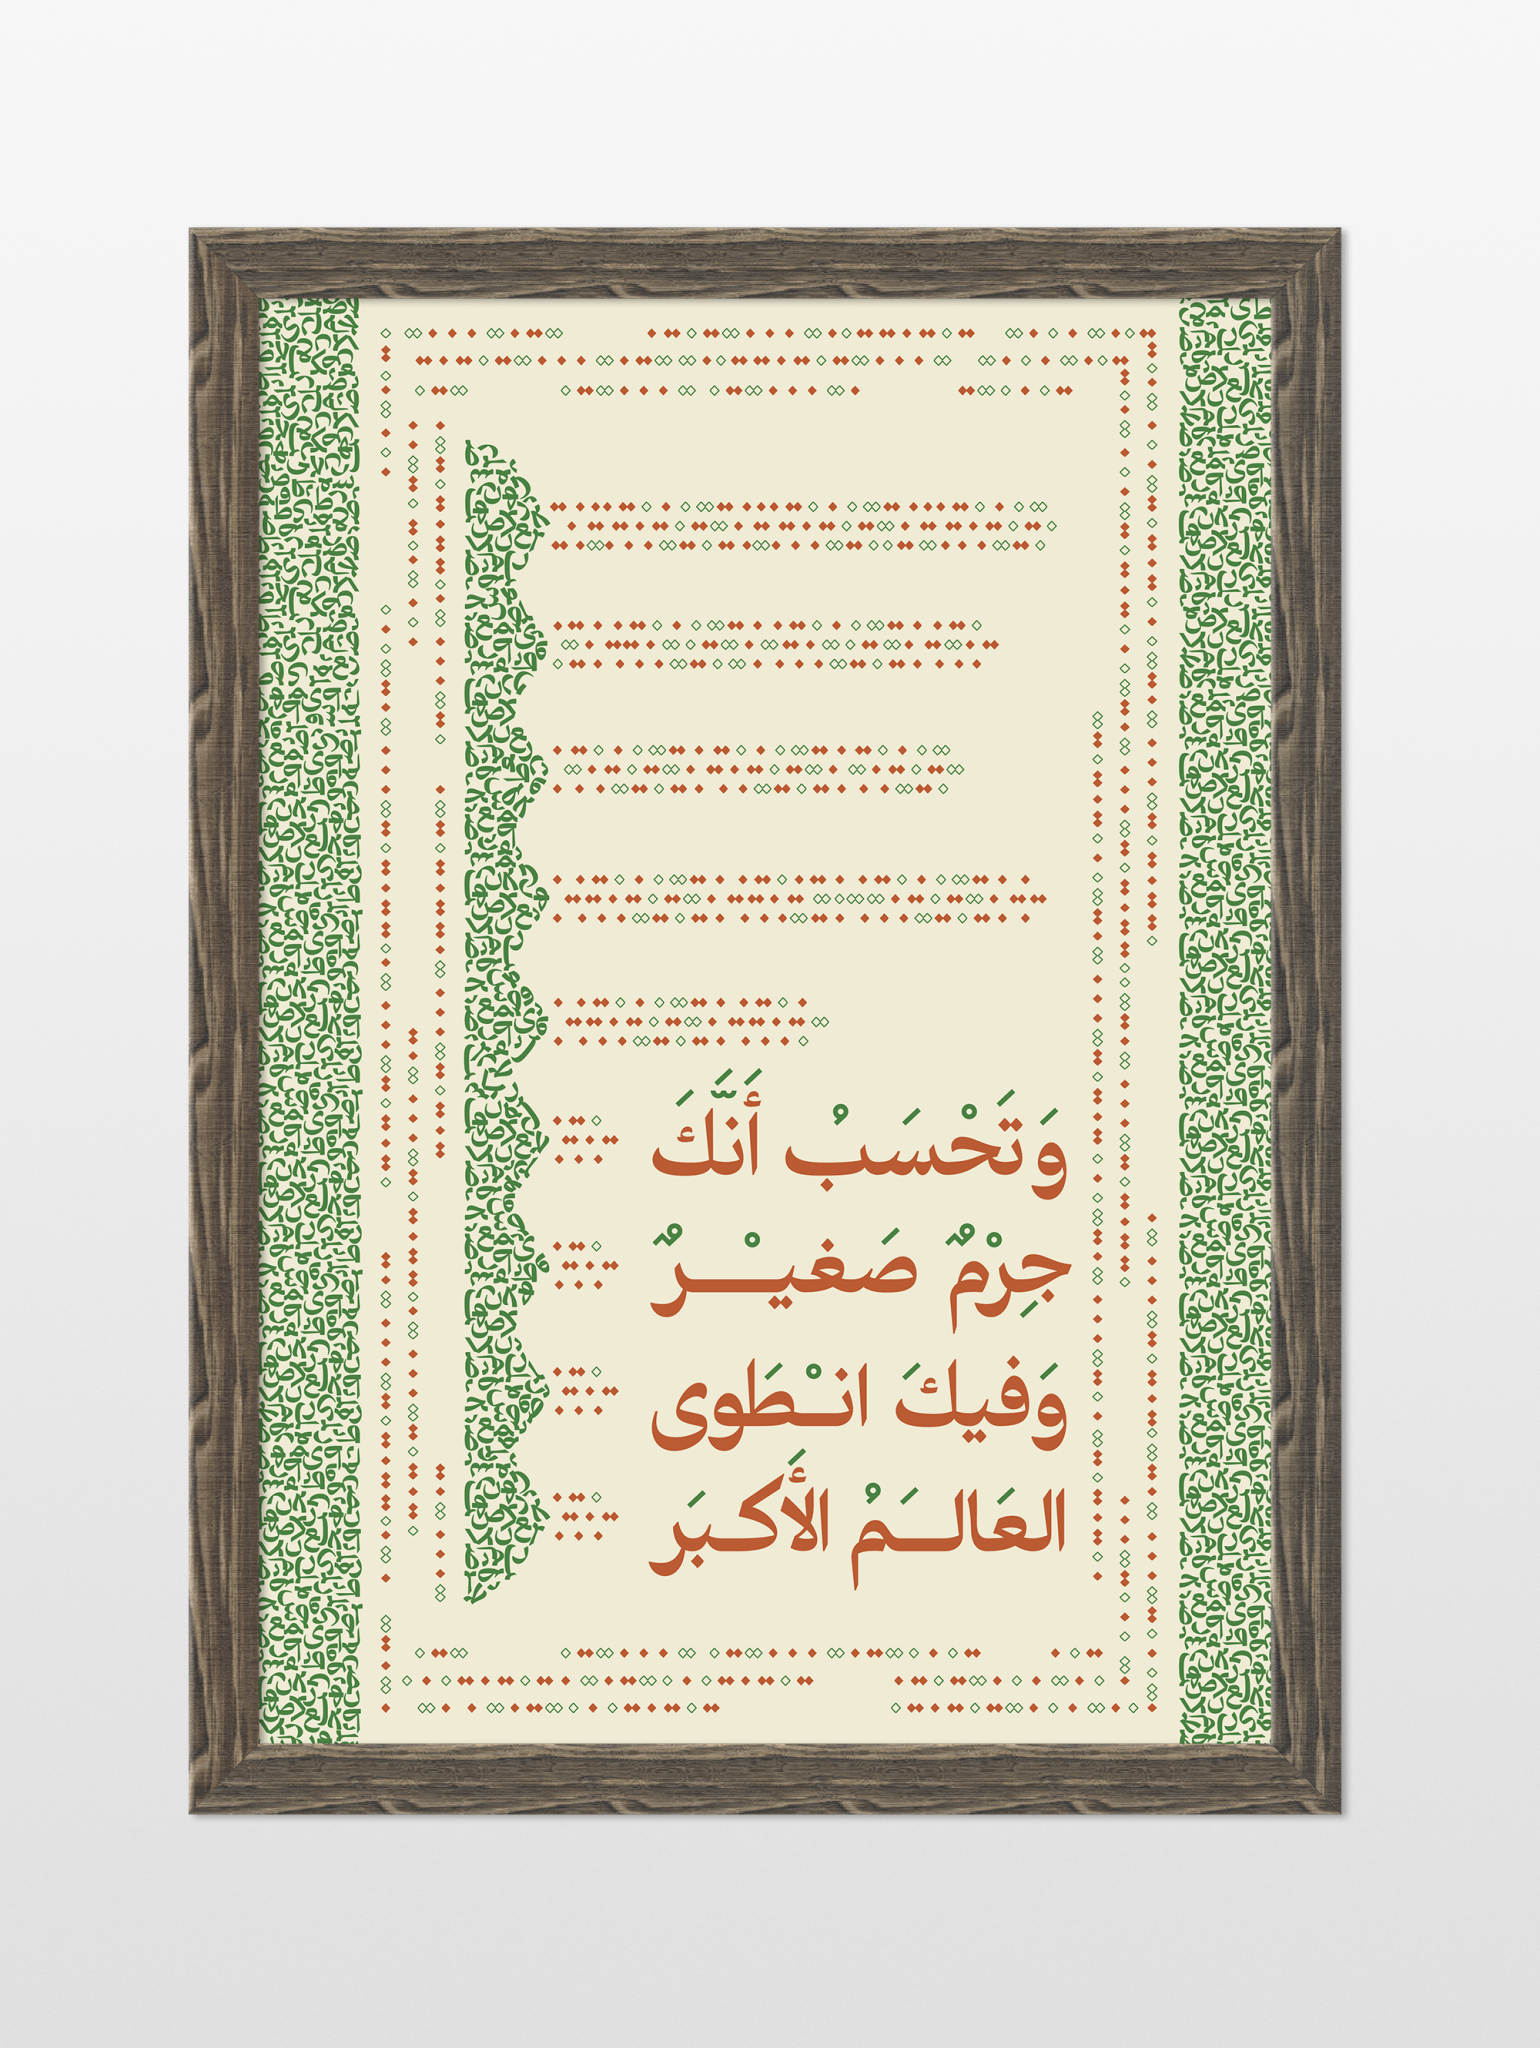 وَتَحْسَبُ أَنَّكَ
جِرْمٌ صَغيْـــرٌ
وَفيكَ انـْـطَوى
العَالــَـمُ الأَكـبَر